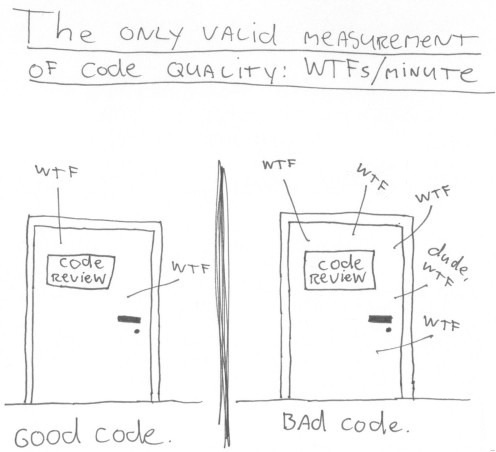 The ONLY VALID MEASUREMENT
OF Code QUALITY: WTFs/MINUTE
WTF
Code
REVIEW
WTF
Good code.
WTF
WTF
WTF
Code
REVIEW
dude,
WTF
WTF
BAd code.